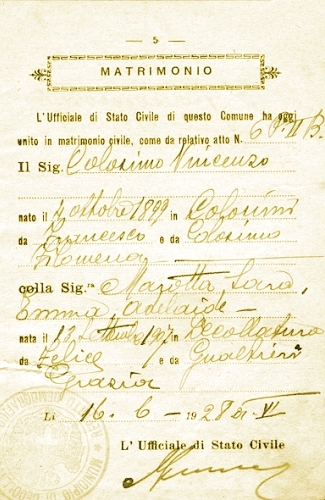 — 5 —
MATRIMONIO
L'Ufficiale di Stato Civile di questo Comune ha oggi
unito in matrimonio civile, come da relativo atto N. 6 P. II B.
Il Sig. Colosimo Vincenzo
nato il 4 ottobre 1899 in Colosimi
da Francesco e da Colosimo
Filomena
colla Sig.ra Marotta Sara,
Emma Adelaide —
nata il 13 Settembre 907 in Decollatura
da Felice e da Gualtieri
Grazia
Lì 16 - 6 - 1928 VI
L' Ufficiale di Stato Civile
MUNICIPIO DI